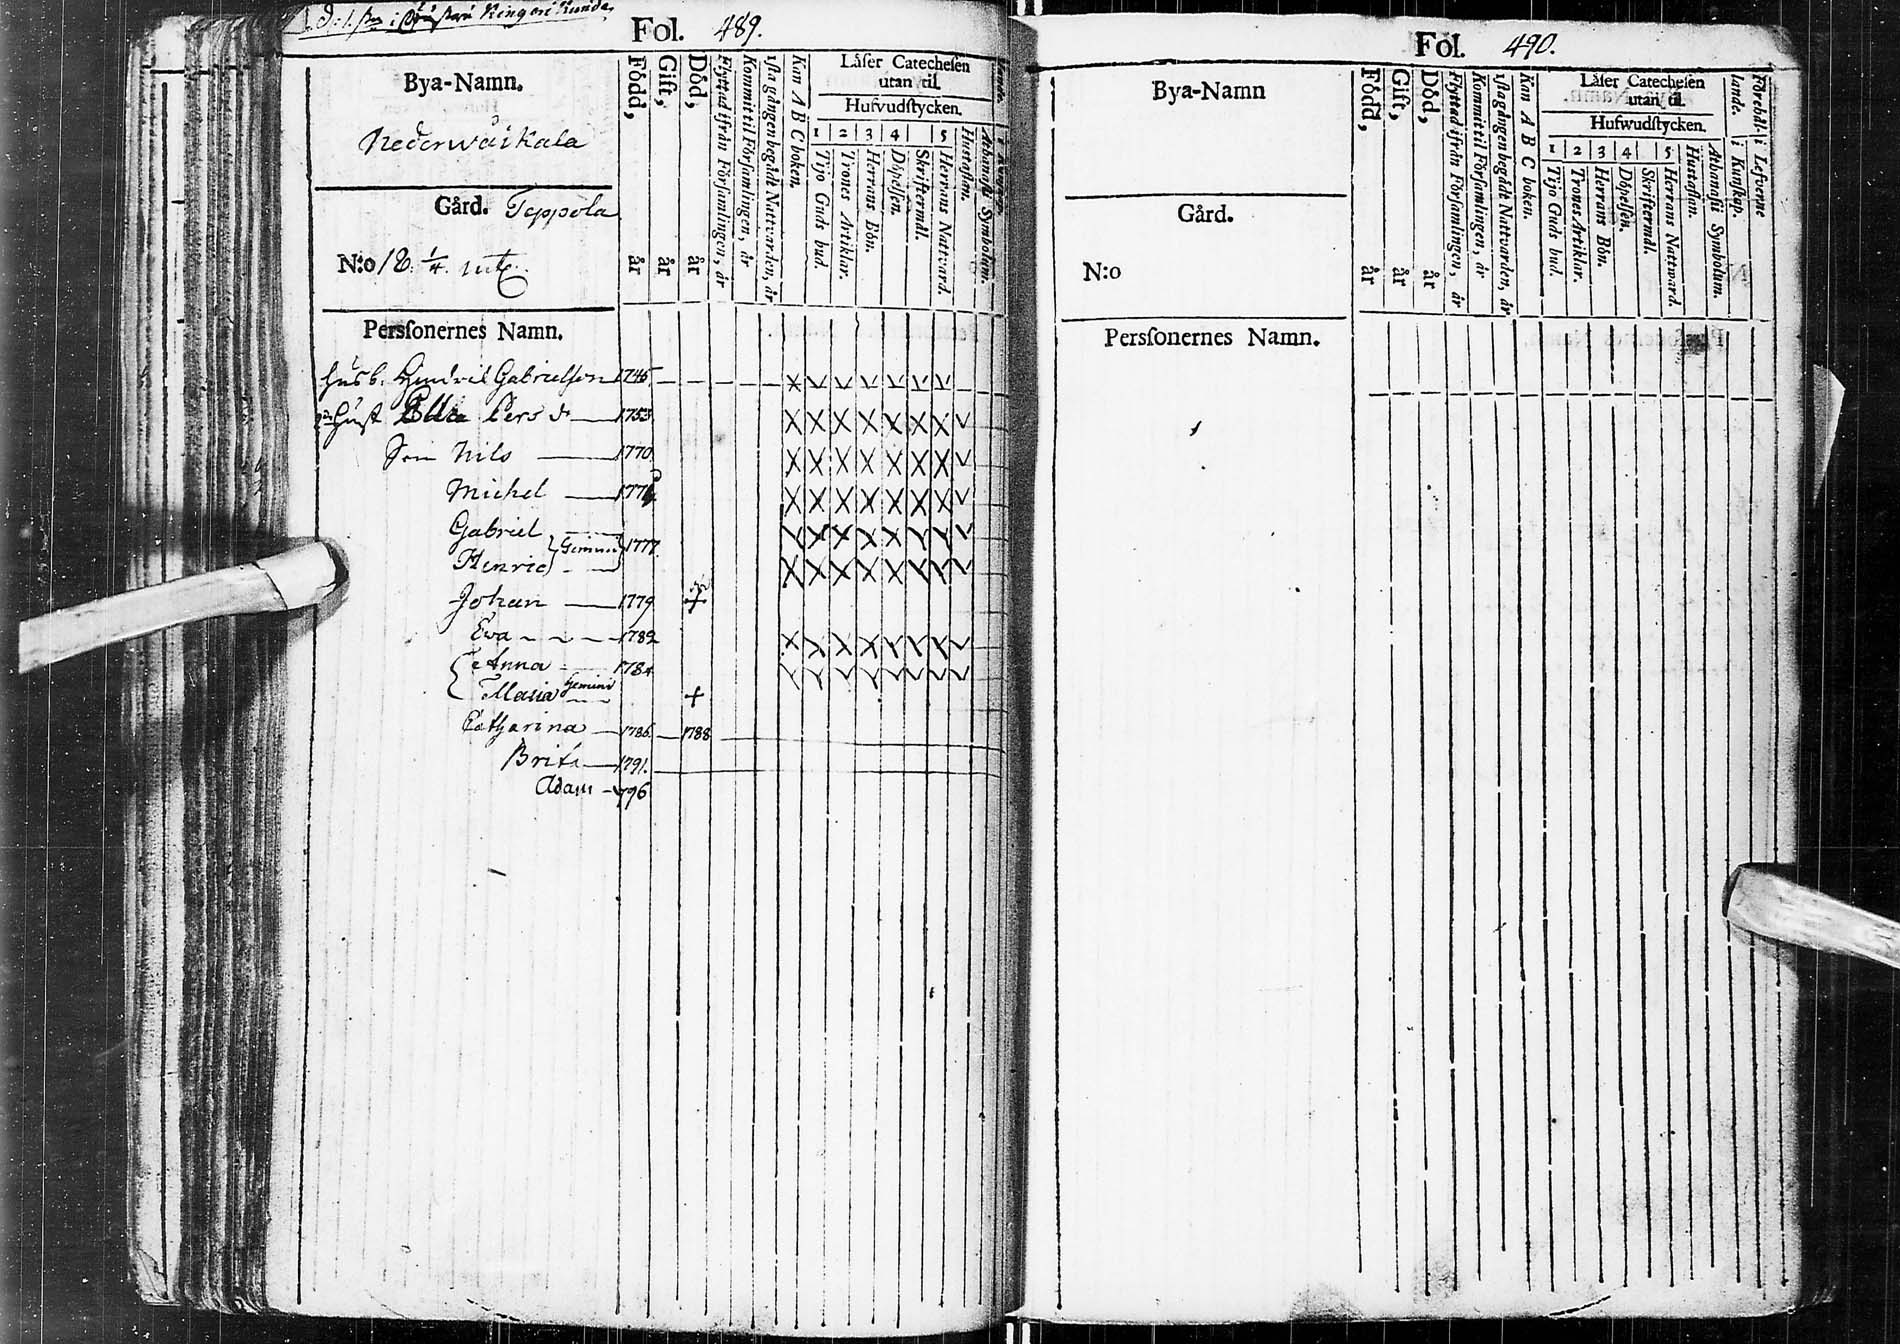 Fol. 489.
Bya-Namn.
Nederwäikala
Gård. Teppola
N:o 18. 1/4. mt.
Född, år
Gift, år
Död, år
Flyttad ifrån Församlingen, år
Kommit til Församlingen, år
1sta gången begådt Nattvarden, år
Kan A B C boken.
Låser Catechesen
utan til.
Hufvudstycken.
1 2 3 4 5
Tijo Guds bud.
Trones Artiklar.
Herrans Bön.
Döpelsen.
Skriftermål.
Herrans Natvard.
Hustaflan.
Athanasii Symbolum.
Personernes Namn.
Husb. Hendric Gabrielson 1745
2dra Hust Ella Pers dr 1753
Son Nils 1770
Michel 1776
Gabriel
Gemini 1777.
Henric
Johan 1779 +
Ewa 1782
Anna 1784
Gemini
Maria +
Catharina 1786. 1788
Brita 1791.
Adam 1796
Fol. 490.
Bya-Namn
Gård.
N:o
Född, år
Gift, år
Död, år
Flyttad ifrån Församlingen, år
Kommit til Församlingen, år
1sta gången begådt Nattvarden, år
Kan A B C boken.
Låser Catechesen
utan til.
Hufwudstycken.
1 2 3 4 5
Tijo Guds bud.
Trones Artiklar.
Herrans Bön.
Döpelsen.
Skriftermål.
Herrans Nattward.
Hustaflan.
Athanasii Symbolum.
i Kunskap.
i Lefverne
Personernes Namn.